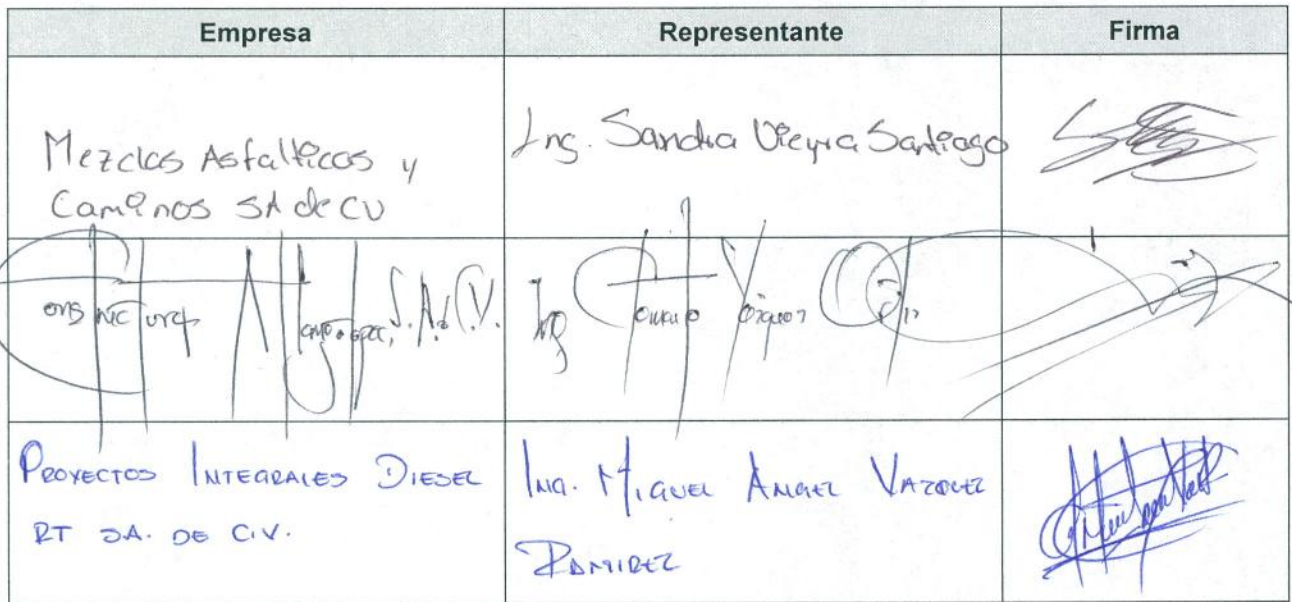 Empresa Representante Firma
Mezclas Asfalticas y
Caminos SA de CV
Ing. Sandra Vieyra Santiago
Constructura S.A. de C.V.
Ing
PROYECTOS INTEGRALES DIESEL
RT S.A. DE C.V.
ING. MIGUEL ANGEL VAZQUEZ
RAMIREZ